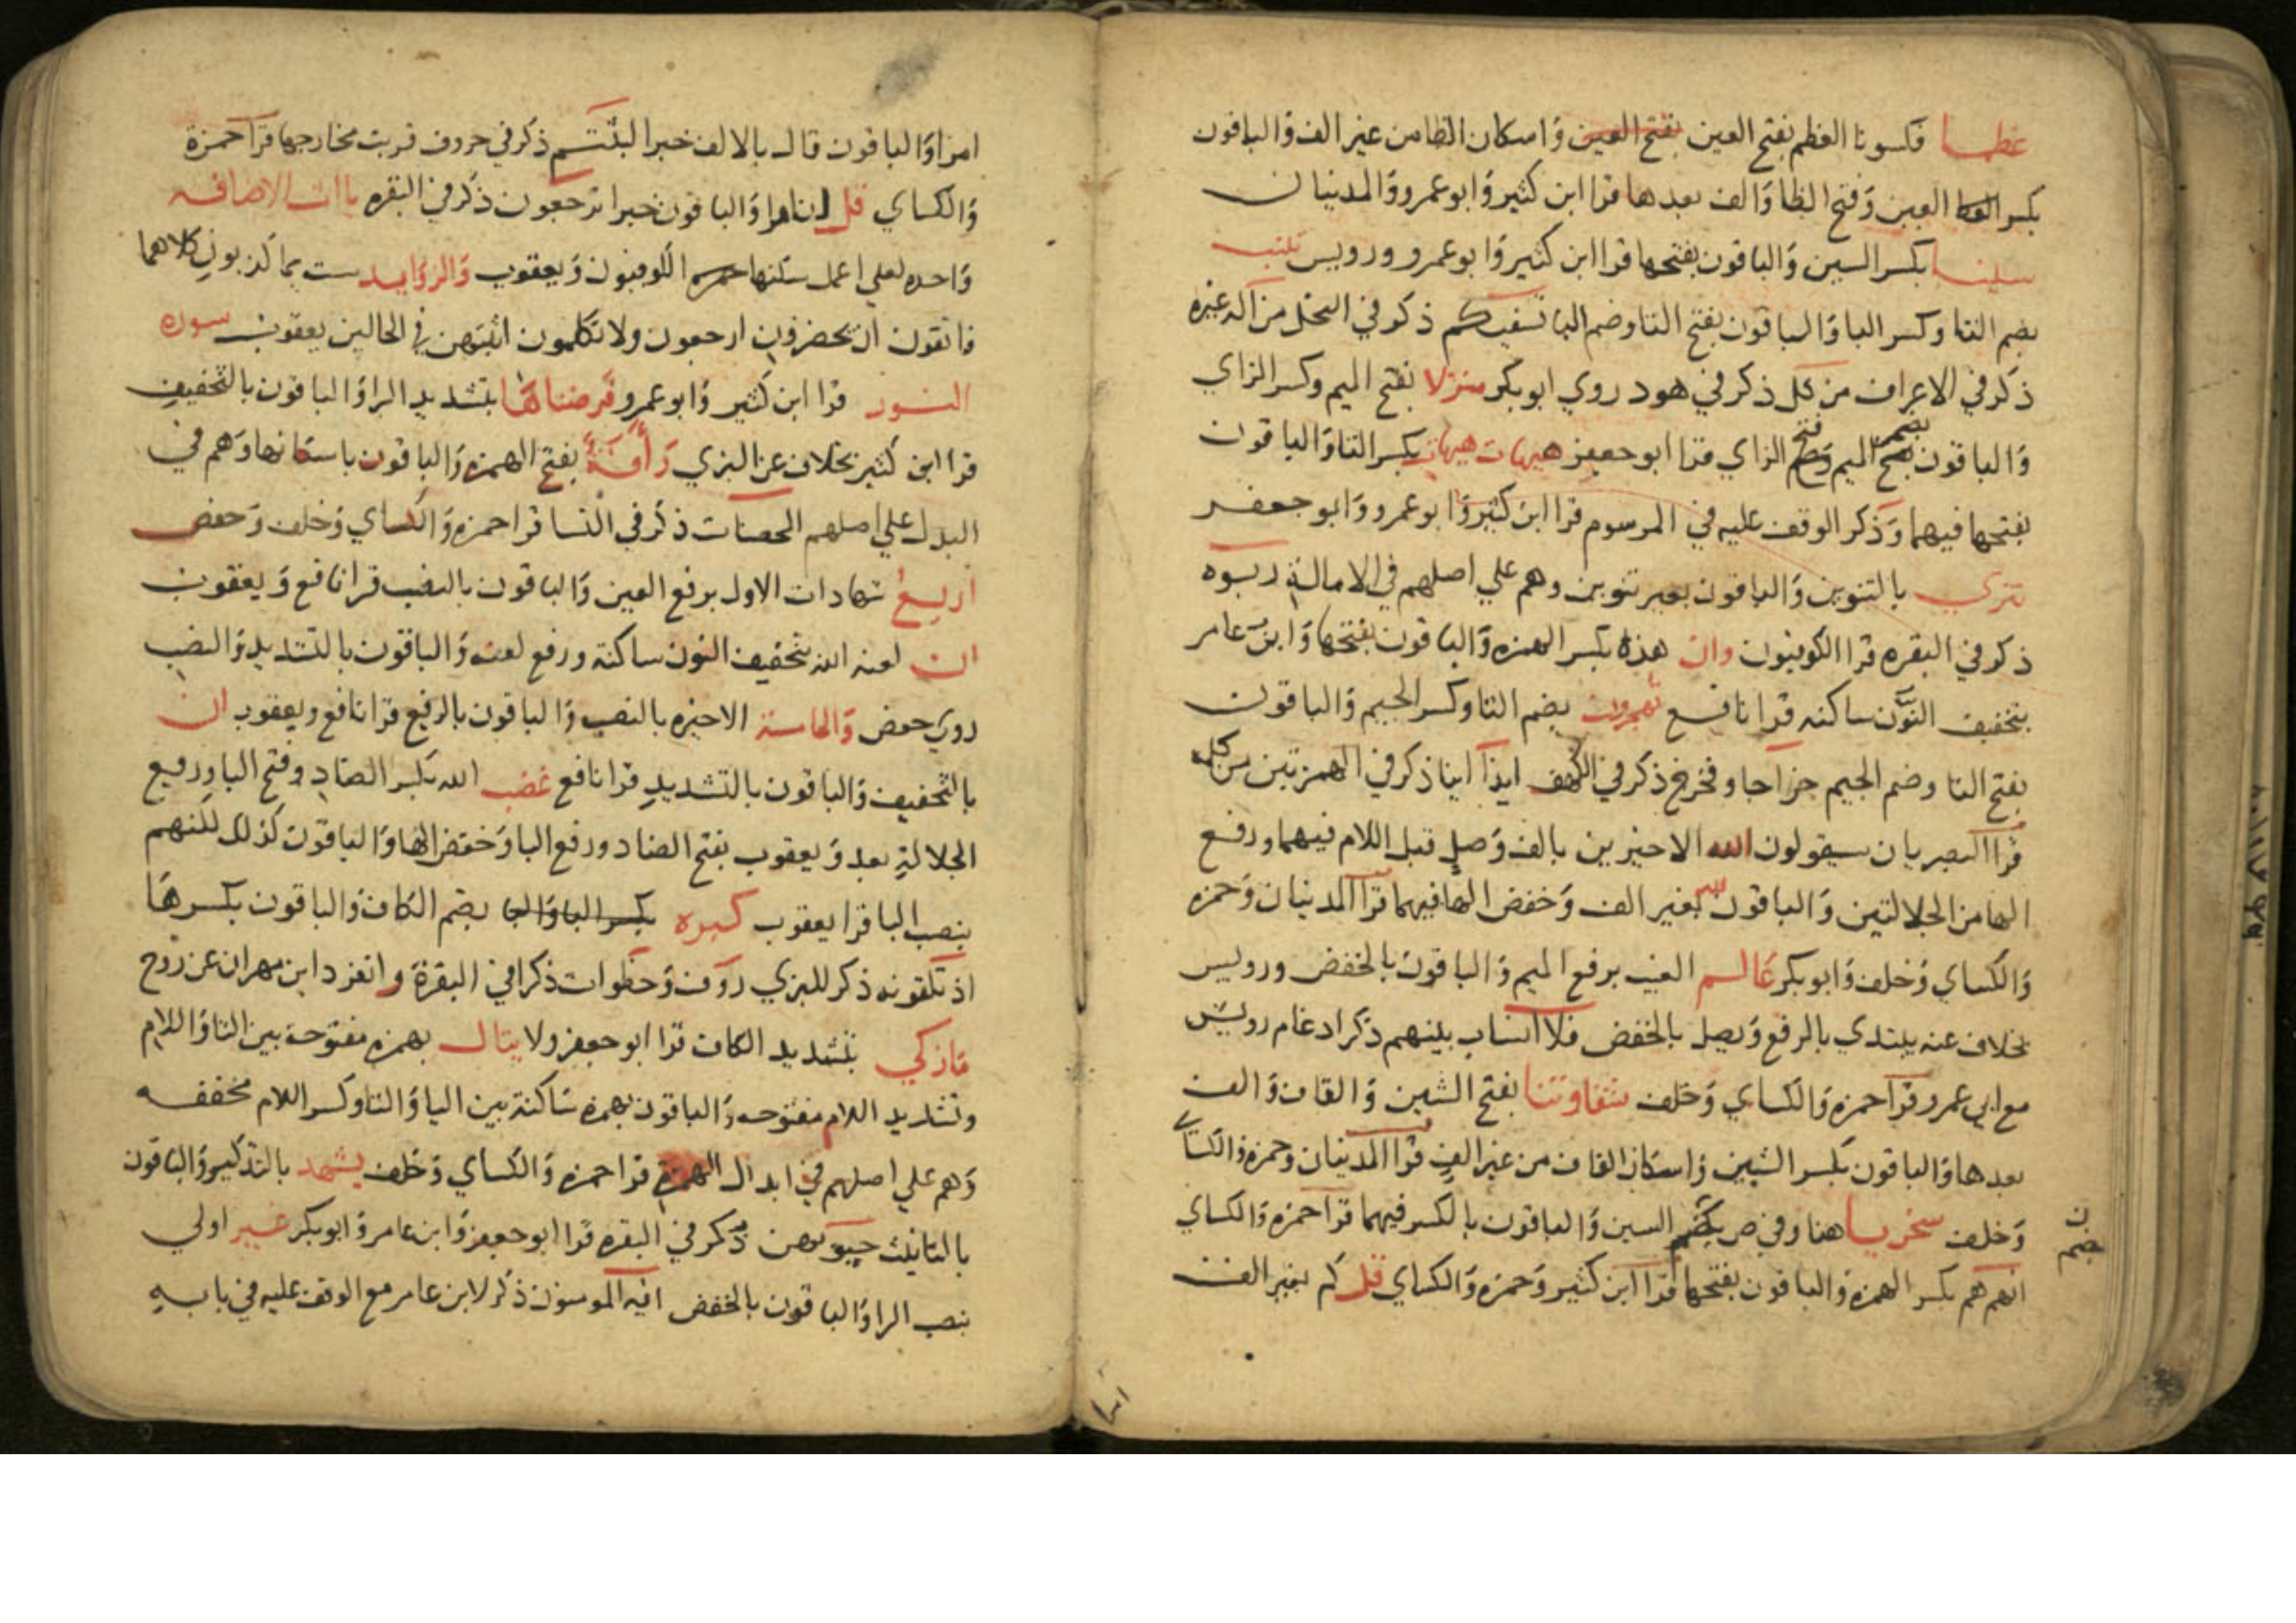 عظما فكسونا العظم بفتح العين بفتح العين واسكان الظا من غير الف والباقون
بكسر العين وفتح الظا والف بعدها قرا ابن كثير وابو عمرو والمدنيان
سينا بكسر السين والباقون بفتحها قرا ابن كثير وابو عمرو ورويس تنبت
بضم التا وكسر البا والباقون بفتح التا وضم البا نسقيكم ذكر في النحل من اله غيره
ذكر في الاعراف من كل ذكر في هود روي ابو بكر منزلا بفتح الميم وكسر الزاي
والباقون بضم الميم وفتح الزاي قرا ابو جعفر هيهات هيهات بكسر التا والباقون
بفتحها فيهما وذكر الوقف عليه في المرسوم قرا ابن كثير وابو عمرو وابو جعفر
تتري بالتنوين والباقون بغير تنوين وهم علي اصلهم في الامالة ربوه
ذكر في البقره قرا الكوفيون وان هذه بكسر الهمزه والباقون بفتحها وابن عامر
بتخفيف النون ساكنه قرا نافع تهجرون بضم التا وكسر الجيم والباقون
بفتح التا وضم الجيم خراجا وفخرج ذكر في الكهف ايذا اينا ذكر في الهمزتين من كلمه
قرا البصريان سيقولون الله الاخيرين بالف وصل قبل اللام فيهما ورفع
الها من الجلالتين والباقون لله بغير الف وخفض الها فيهما قرا المدنيان وحمزه
والكساي وخلف وابو بكر عالم الغيب برفع الميم والباقون بالخفض ورويس
بخلاف عنه يبتدي بالرفع ويصل بالخفض فلا انساب بينهم ذكر ادغام رويس
مع ابي عمرو قرا حمزه والكساي وخلف شقاوتنا بفتح الشين والقاف والف
بعدها والباقون بكسر الشين واسكان القاف من غير الف قرا المدنيان وحمزه والكساي
وخلف سخريا هنا وفي ص بضم السين والباقون بالكسر فيهما قرا حمزه والكساي
ن بضم
انهم هم بكسر الهمزه والباقون بفتحها قرا ابن كثير وحمزه والكساي قل كم بغير الف
امرا والباقون قال بالالف خبرا لبثتم ذكر في حروف قربت مخارجها قرا حمزة
والكساي قل ان امرا والباقون خبرا ترجعون ذكر في البقره ياات الاضافه
واحده لعلي اعمل سكنها الكوفيون ويعقوب والزوايد ست بما كذبون كلاهما
فاتقون ان يحضرون ارجعون ولا تكلمون اثبتهن في الحالين يعقوب سوره
النور قرا ابن كثير وابو عمرو فرضناها بتشديد الرا والباقون بالتخفيف
قرا ابن كثير بخلاف عن البزي رأفة بفتح الهمزه والباقون باسكانها وهم في
البدل علي اصلهم المحصنات ذكر في النسا قرا حمزه والكساي وخلف وحفص
اربع شهادات الاول برفع العين والباقون بالنصب قرا نافع ويعقوب
ان لعنه الله بتخفيف النون ساكنة ورفع لعنه والباقون بالتشديد والنصب
روي حفص والخامسة الاخيره بالنصب والباقون بالرفع قرا نافع ويعقوب ان
بالتخفيف والباقون بالتشديد قرا نافع غضب الله بكسر الضاد وفتح البا ورفع
الجلالة بعد ويعقوب بفتح الضاد ورفع البا وخفض الها والباقون كذلك لكنهم
بنصب البا قرا يعقوب كبره بكسر البا والبا بضم الكاف والباقون بكسرها
اذ تلقونه ذكر للبزي روف وخطوات ذكرا في البقرة وانفرد ابن مهران عن روح
مازكي بتشديد الكاف قرا ابو جعفر ولا يتال بهمزه مفتوحة بين التا واللام
وتشديد اللام مفتوحه والباقون بهمزه ساكنة بين اليا والتا وكسر اللام مخففه
وهم علي اصلهم في ابدال الهمزه قرا حمزه والكساي وخلف يشهد بالتذكير والباقون
بالتانيث جيوبهن ذكر في البقره قرا ابو جعفر وابن عامر وابو بكر غير اولي
بنصب الرا والباقون بالخفض ايه المومنون ذكر لابن عامر مع الوقف عليه في بابه